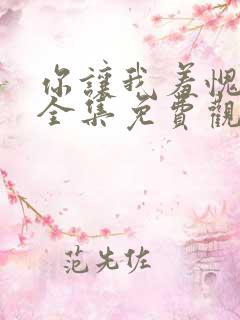 你讓我羞愧
全集免費觀
范先佐